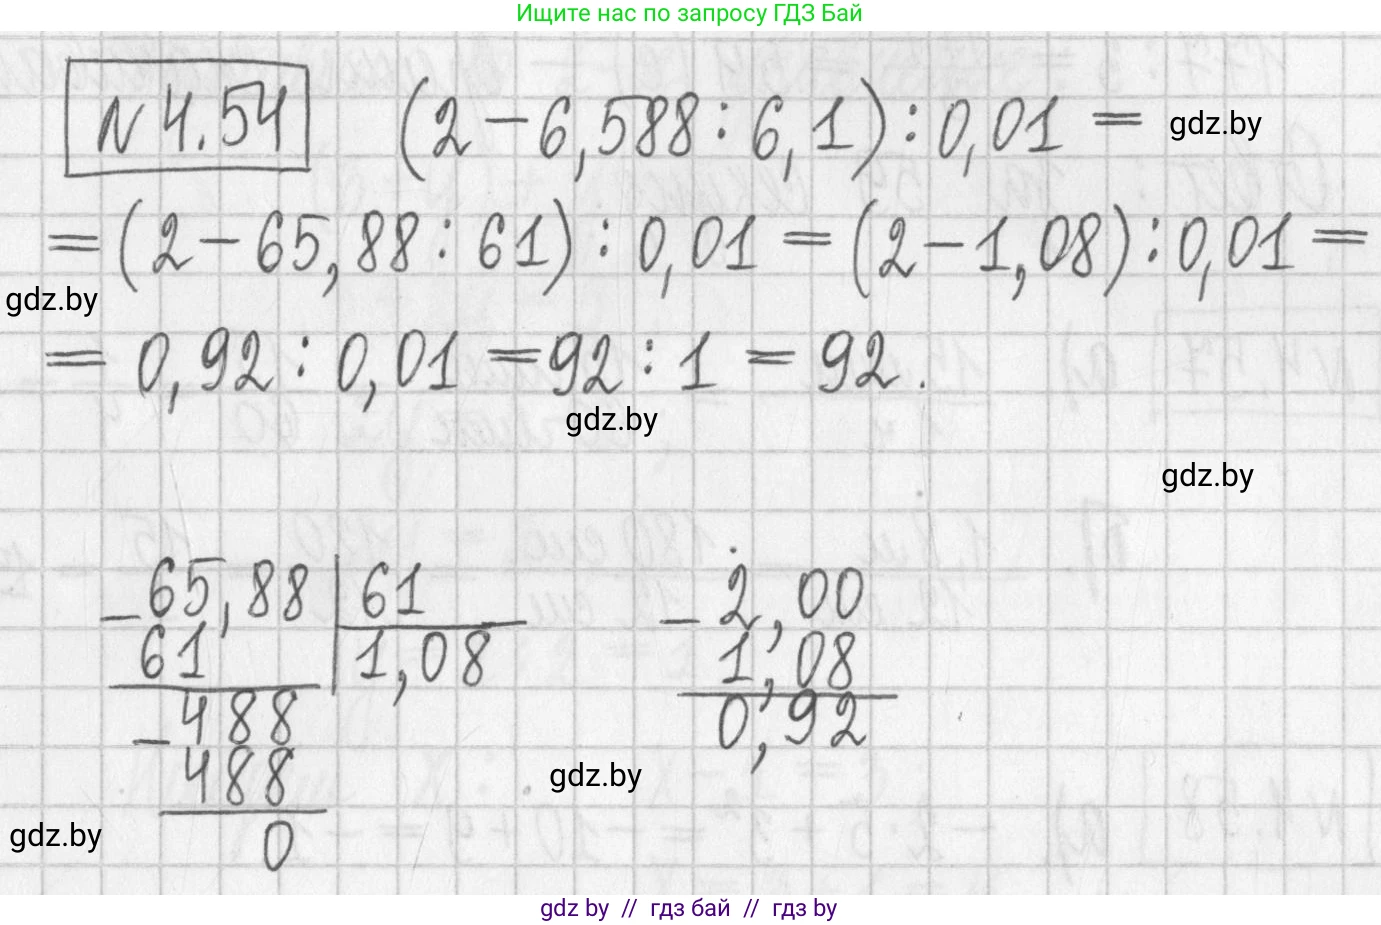 Ищите нас по запросу ГДЗ Бай
N 4.54 (2 - 6,588 : 6,1) : 0,01 =
gdz.by
= (2 - 65,88 : 61) : 0,01 = (2 - 1,08) : 0,01 =
gdz.by
= 0,92 : 0,01 = 92 : 1 = 92.
gdz.by
gdz.by
- 65,88 | 61
61 | 1,08
- 488
488
0
- 2,00
1,08
0,92
gdz.by
gdz.by
gdz by // гдз бай // гдз by